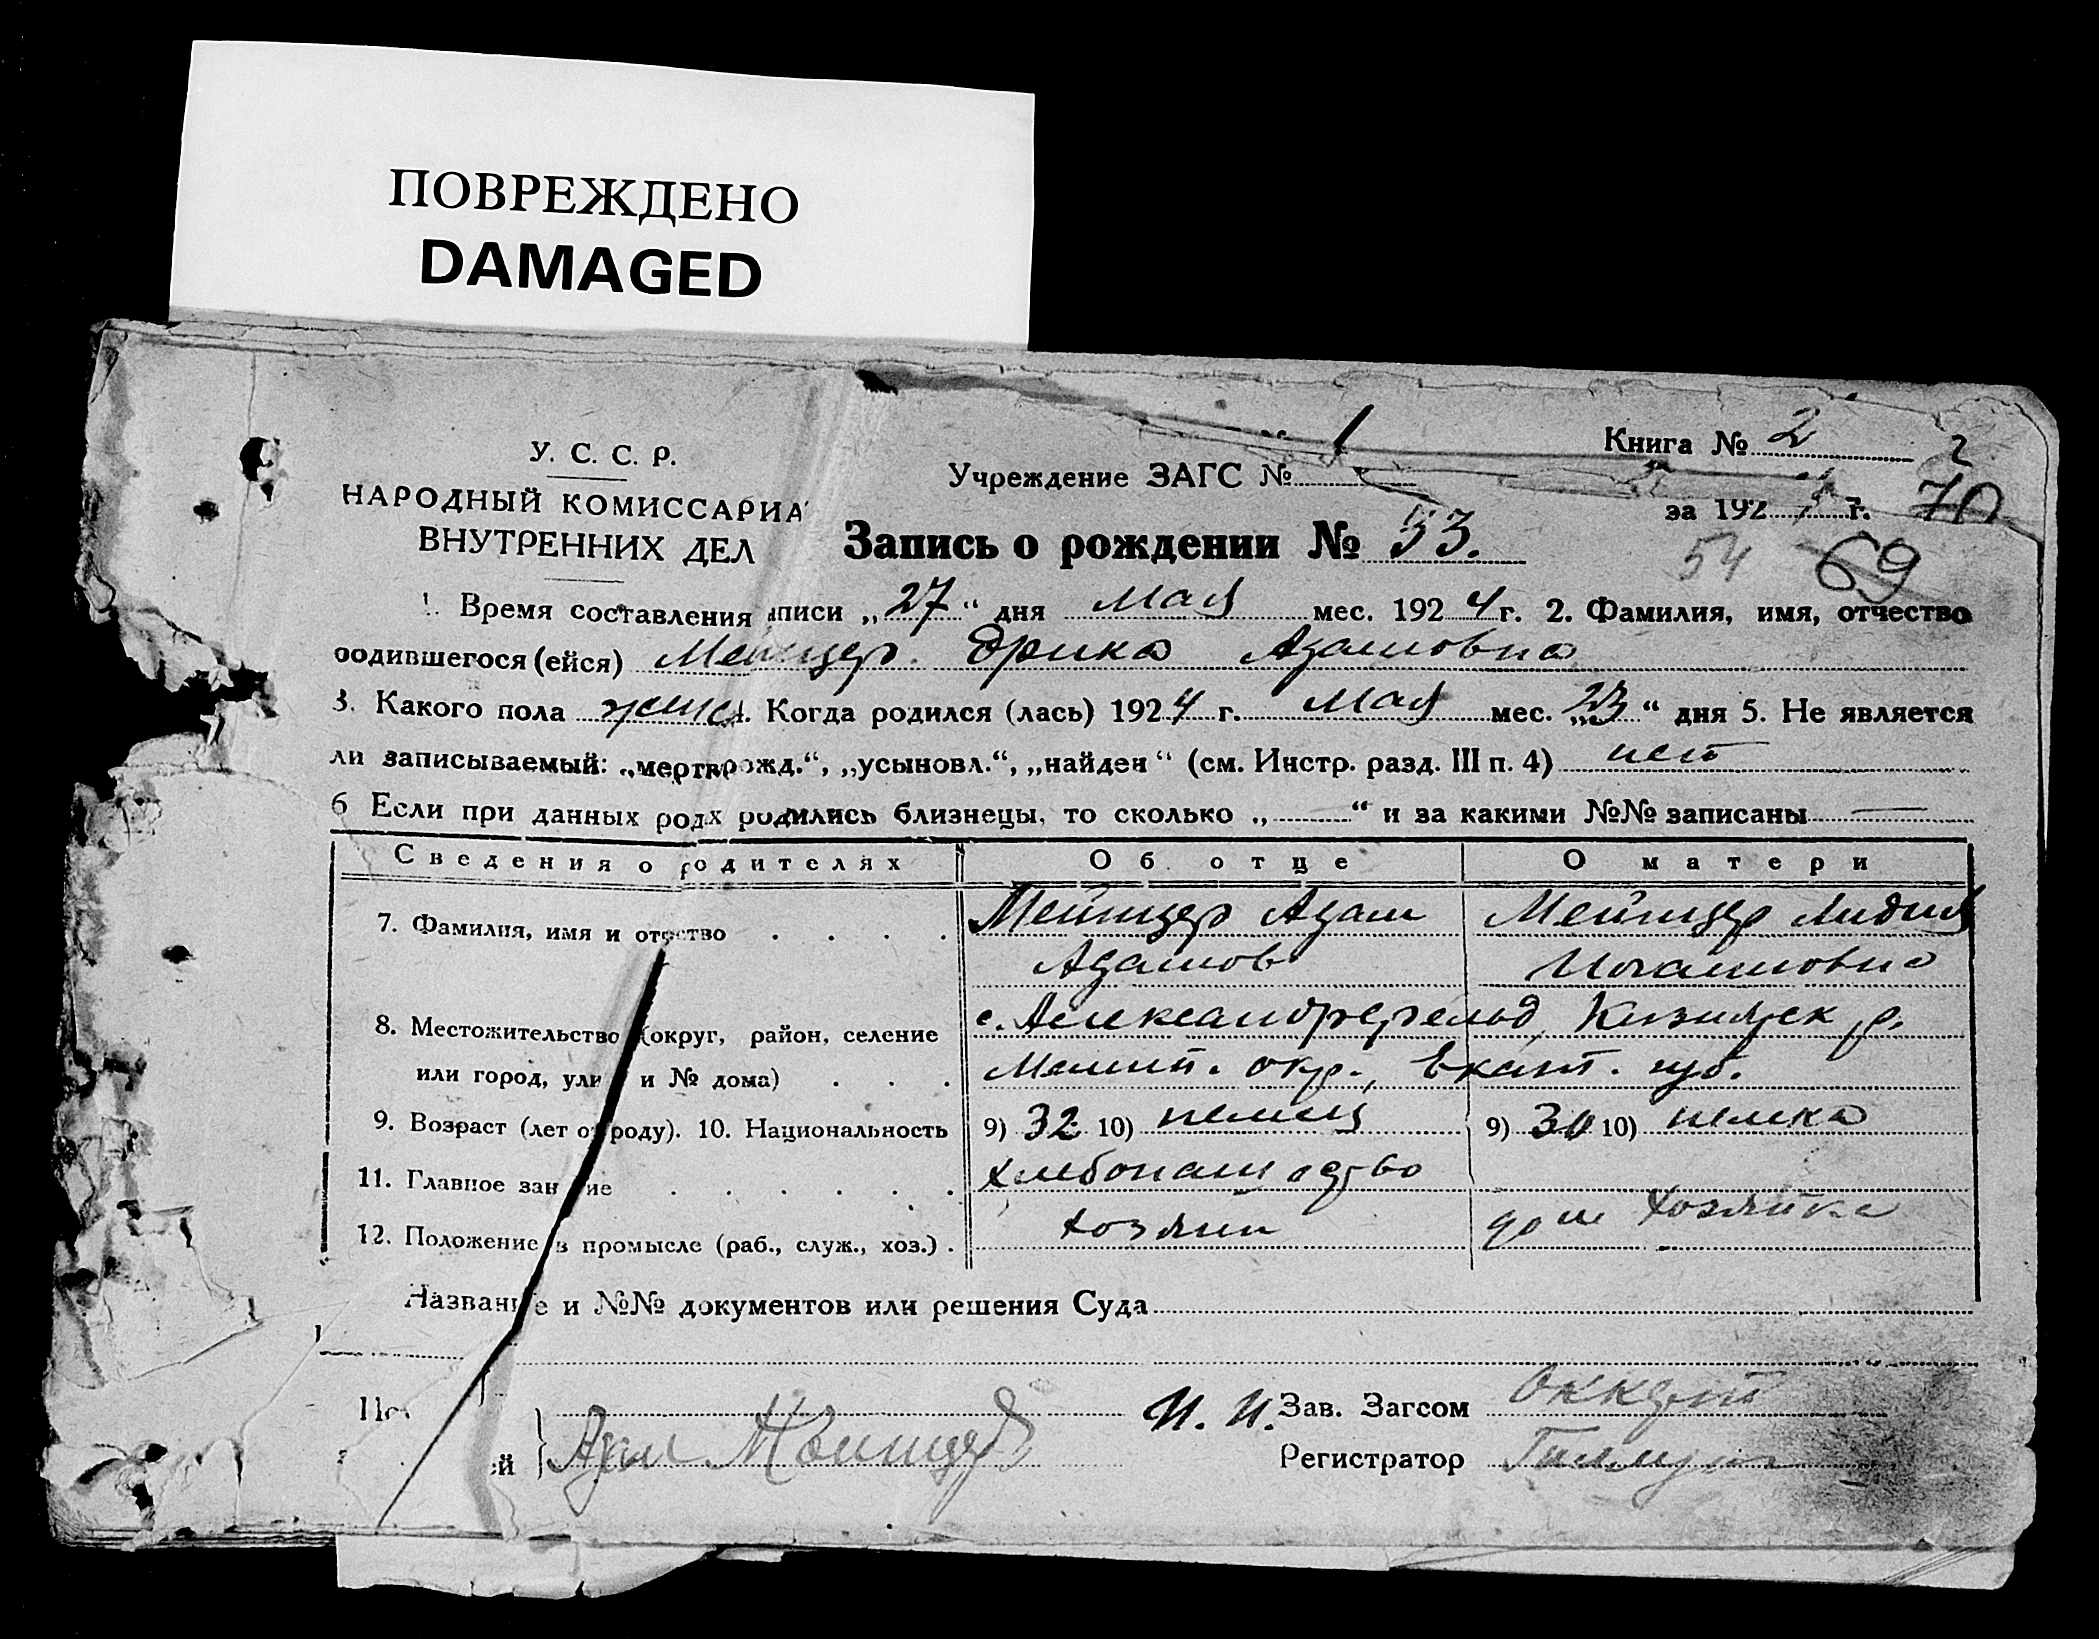 ПОВРЕЖДЕНО
DAMAGED
У. С. С. Р.
НАРОДНЫЙ КОМИССАРИА
ВНУТРЕННИХ ДЕЛ
Учреждение ЗАГС № 1
Книга № 2 2
за 192 г. 70
Запись о рождении № 53.
54 69
1. Время составления аписи „27“ дня Мая мес. 1924 г. 2. Фамилия, имя, отчество
родившегося (ейся) Мейнцер Эрика Адамовна
3. Какого пола женс 4. Когда родился (лась) 1924 г. Мая мес. „23“ дня 5. Не является
ли записываемый: „мертворожд.“, „усыновл.“, „найден“ (см. Инстр. разд. III п. 4) нет
6 Если при данных родх родились близнецы, то сколько „—“ и за какими №№ записаны —
Сведения о родителях Об отце О матери
7. Фамилия, имя и отчество Мейнцер Адам Мейнцер Лидия
Адамов
8. Местожительство (округ, район, селение с. Александрфельд
или город, ули и № дома) Мелит. окр., Екат. губ.
9. Возраст (лет от роду). 10. Национальность 9) 32 10) немец 9) 30 10) немка
11. Главное зан ие хлебопашество
12. Положение в промысле (раб., служ., хоз.) хозяин дом хозяйка
Название и №№ документов или решения Суда
И. И. Зав. Загсом
ей } Адам Мейнцер Регистратор